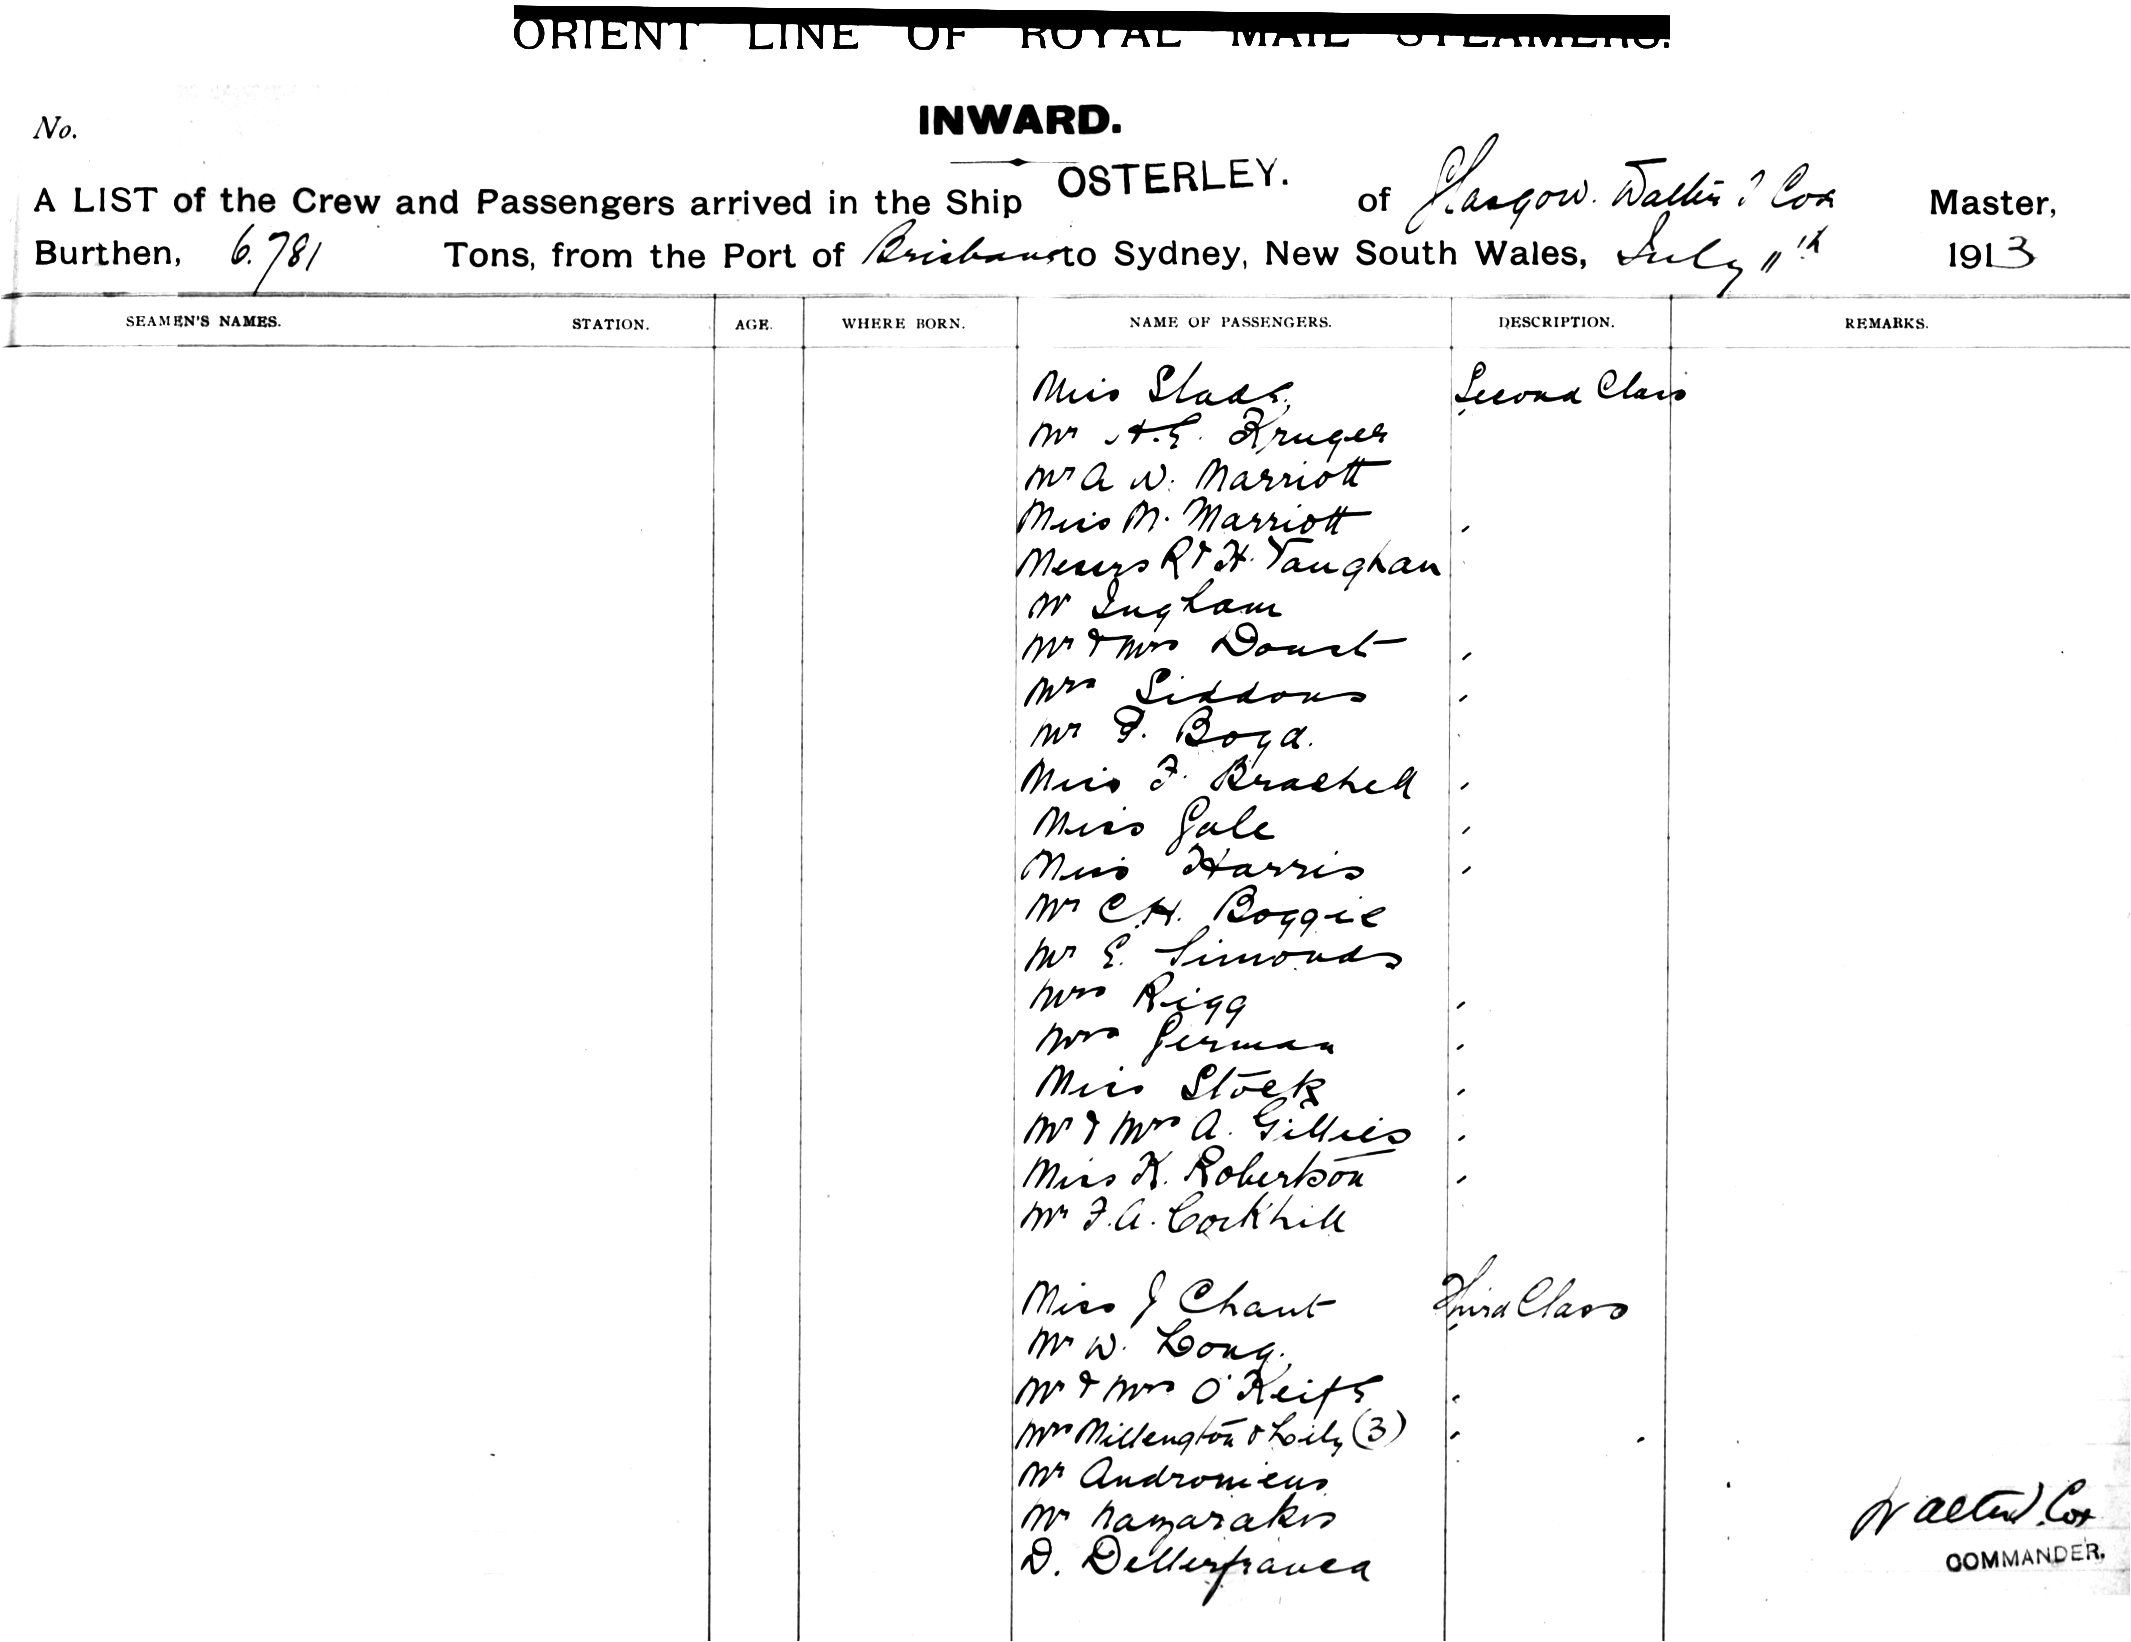 ORIENT LINE OF ROYAL MAIL STEAMERS.
INWARD.
No.
A LIST of the Crew and Passengers arrived in the Ship OSTERLEY. of Glasgow. Walter J Cox Master,
Burthen, 6.781 Tons, from the Port of Brisbane to Sydney, New South Wales, July 11th 1913
SEAMEN'S NAMES. STATION. AGE. WHERE BORN. NAME OF PASSENGERS. DESCRIPTION. REMARKS.
Miss Slade, Second Class
Mr A.E. Kruger
Mr A W. Marriott
Miss M. Marriott
Messrs R & H. Vaughan
Mr Ingham
Mr & Mrs Doust
Mrs Siddons
Mr P. Boyd.
Miss F. Brachell
Miss Gale
Miss Harris
Mr C.H. Boggie
Mr E. Simonds
Mrs Rigg
Mrs German
Miss Stock
Mr & Mrs A. Gillies
Miss K. Robertson
Mr F.A. Corkhill
Miss J Chant Third Class
Mr W. Long.
Mr & Mrs O'Keife
Mrs Millengton & Lily (3)
Mr Andronicus
Mr
D. Dellerfranca
Walter J. Cox
COMMANDER.